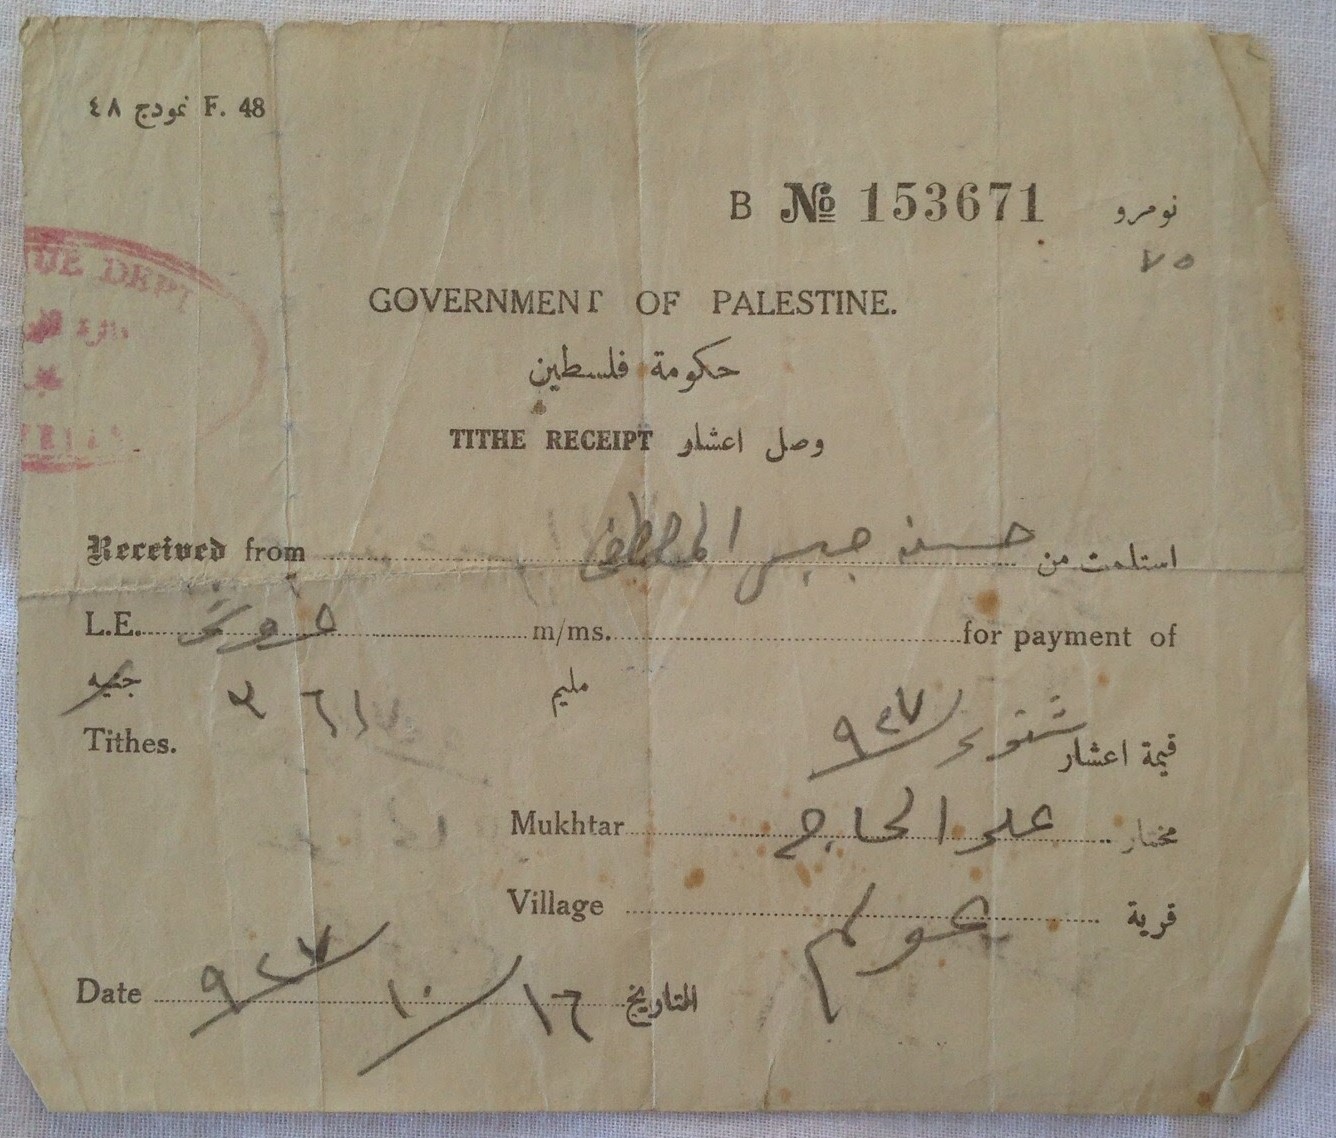 نموذج ٤٨ F. 48
B No 153671 نومرو
٧٥
UE DEPT
GOVERNMENT OF PALESTINE.
حكومة فلسطين
TITHE RECEIPT وصل اعشار
Received from استلمت من حسن
L.E. m/ms. for payment of
جنيه مليم
Tithes. قيمة اعشار ٩٢٧
Mukhtar علي الحاج مختار
Village عولم قرية
Date ١٦/١٠/٩٢٧ التاريخ